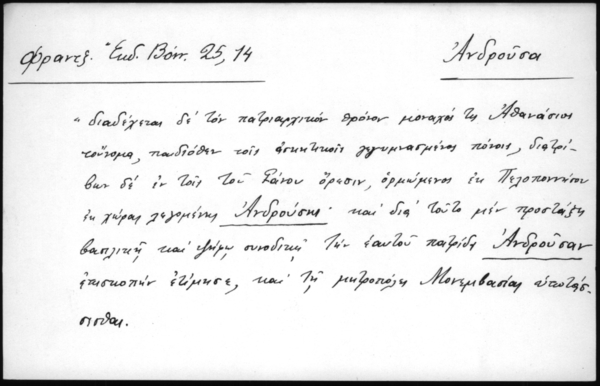 Φραντζ. Ἐκδ. Βόνν. 25, 14
Ἀνδροῦσα
"διαδέχεται δὲ τὸν πατριαρχικὸν θρόνον μοναχός τις Ἀθανάσιος
τοὔνομα, παιδιόθεν τοῖς ἀσκητικοῖς γεγυμνασμένος πόνοις, διατρί-
βων δὲ ἐν τοῖς τοῦ Γάνου ὄρεσιν, ὁρμώμενος ἐκ Πελοποννήσου
ἐκ χώρας λεγομένης Ἀνδρούσης· καὶ διὰ τοῦτο μὲν προστάξει
βασιλικῇ καὶ ψήφῳ συνοδικῇ τὴν ἑαυτοῦ πατρίδα Ἀνδροῦσαν
ἐπισκοπὴν ἐτίμησε, καὶ τῇ μητροπόλει Μονεμβασίας ὑποτάσ-
σεσθαι.